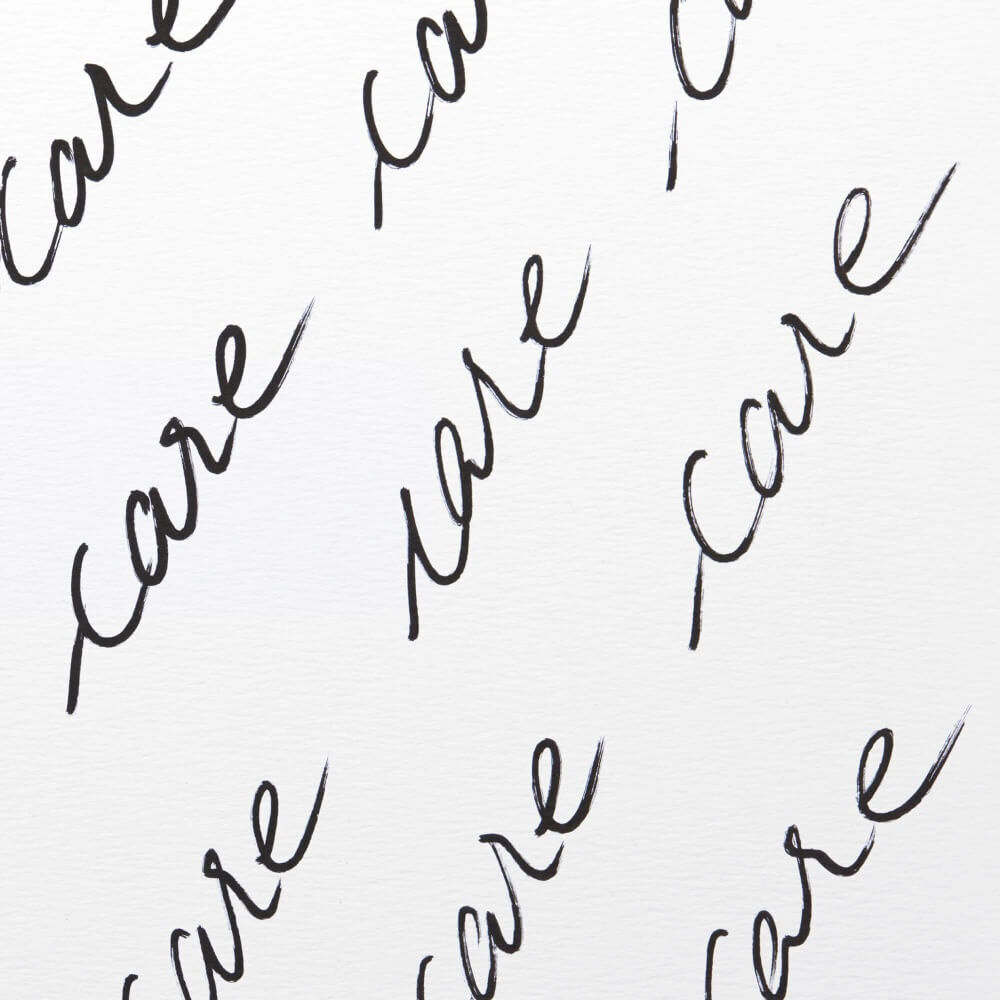 care
ca
c
care
care
care
care
care
care